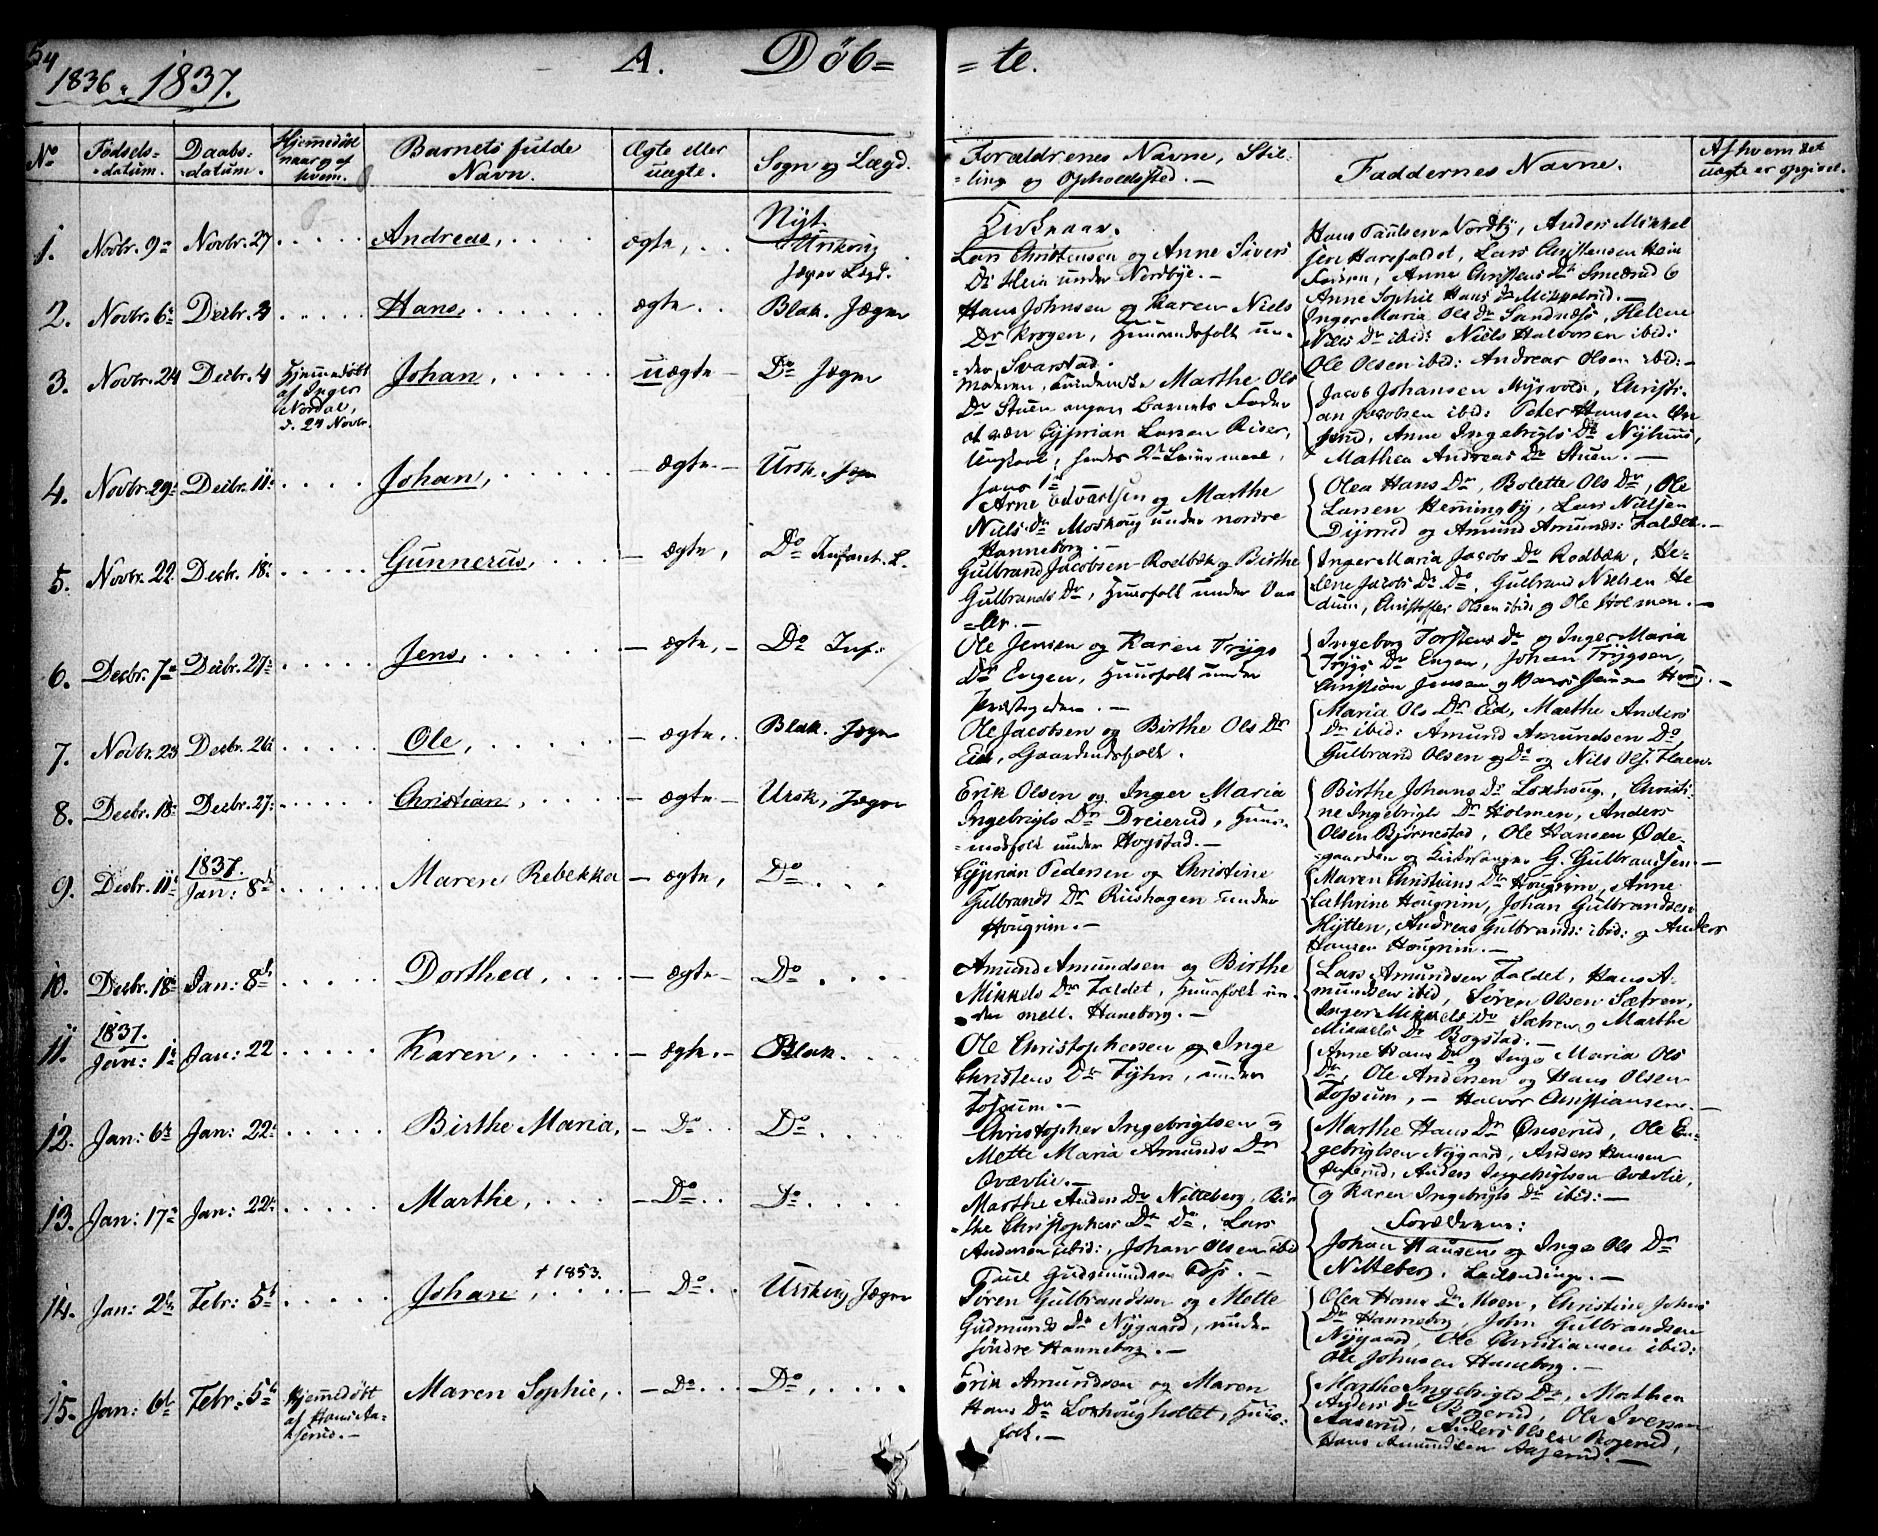 54
1836 " 1837.
A. Døb=
= te.
No
Fødsels-datum.
Daabs-datum.
Hjemmedøbt naar og af hvem.
Barnets fulde Navn.
Ægte eller uægte.
Sogn og Lægd.
Forældrenes Navne, Stil-
ling og Opholdssted. —
Faddernes Navne.
Af hvem det uægte er opgivet.
1. Novbr. 9de Novbr. 27 Andreas, ægte,
Lars Christensen og Anne Sivers
Dr Hein under Nordbye. —
Hans Paulsen Nordby, Anders Mikkel
sen Harefaldet, Lars Christensen Hein
Anne Sophie Hans Dr
2. Novbr. 6te Decbr. 3 Hans, ægte Blak. Jæger
Hans Johnsen og Karen Niels
Dr Krogen, Huusmandsfolk un-
der Svarstad.
Inger Maria Ols Dr Sandnæss, Helene
Niels Dr ibid: Niels Halvorsen ibid:
Ole Olsen ibid: Andreas Olsen ibid: —
3. Novbr. 24 Decbr. 4 Hjemmedøbt
af Inger
Nordal,
d. 24 Novbr.
Johan, uægte — Do Jæger
Moderen, Marthe Ols
Dr Stuen angav Barnets Fader
at være Cyprian Larsen Riser,
Ungkarl, hendes 2de Leiermaal,
hans 1ste
Jacob Johansen Mysvold, Christi-
an Jacobsen ibid: Peter Hansen
Anne Ingebrigts Dr Nyhuus,
Mathea Andreas Dr Stuen. —
4. Novbr. 29 Decbr. 11 Johan, — ægte — Ursk. Jæger
Arne Edvartsen og Marthe
Niels Dr Moskoug under nordre
Hanneborg. —
Olea Hans Dr, Bolette Ols Dr, Ole
Larsen Henningby, Lars Nielsen
Dyrrud og Amund Amunds: Faldet. —
5. Novbr. 22 Decbr. 18 Gunnerus, — ægte, Do Infant. L.
Gulbrand Jacobsen Roelbæk og Birthe
Gulbrands Dr, Huusfolk under
Inger Maria Jacobs Dr Rodbæk, He-
lene Jacobs Dr Do, Gulbrand Nielsen He
dum, Christoffer Olsen ibid: og Ole Holmen. —
6. Decbr. 7de Decbr. 27 Jens, — ægte, — Do Inf:
Ole Jensen og Karen Trygs
Dr Engen, Huusfolk under
Præstegaarden. —
Ingeborg Torstens Dr og Inger Maria
Trygs Dr Engen, Johan Trygsen,
Christian Jensen og Hans Jensen Houg. —
7. Novbr. 23 Decbr. 26 Ole, — ægte, Blak. Jæger
Ole Jacobsen og Birthe Ols Dr
Eid, Gaardmandsfolk.
Maria Ols Dr Eid, Marthe Anders
Dr ibid: Amund Amundsen Do,
Gulbrand Olsen Do og Nils Ols:
8. Decbr. 18 Decbr. 27 Christian, — ægte — Ursk, Jæger
Erik Olsen og Inger Maria
Ingebrigts Dr Dreierud, Huus-
mandsfolk under Hogstad. —
Birthe Johans Dr Loxhoug, Christi-
ne Ingebrigts Dr Holmen, Anders
Olsen Bjørnestad, Ole Hansen Øde-
gaarden og Kirkesanger G. Gulbrandsen. —
9. Decbr. 11 1837. Jan: 8de Maren Rebekka — ægte, Do
Cyprian Pedersen og Christine
Gulbrands Dr Riishagen under
Hougrim. —
Maren Christians Dr Hougrim, Anne
Cathrine Hougrim, Johan Gulbrandsen
Hytten, Andreas Gulbrands: ibid: og Anders
Hansen Hougrim. —
10. Decbr. 18 Jan: 8de Dorthea, — ægte — Do
Amund Amundsen og Birthe
Mikkels Dr Faldet, Huusfolk un-
der mell. Haneborg. —
Lars Amundsen Faldet, Hans A-
mundsen ibid, Søren Olsen Sætren,
Inger Mikkels Dr Sætren og Marthe
Mikkels Dr Bogstad. —
11. 1837. Jan: 1 Jan: 22 Karen, — ægte. — Blak.
Ole Christophersen og Inge
Christens Dr Tyhn, under
Fossum. —
Anne Hans Dr og Inge Maria Ols
Dr, Ole Andersen og Hans Olsen
Fossum, — Halvor Christiansen. —
12. Jan: 6te Jan: 22 Birthe Maria, — Do — Do
Christopher Ingebrigtsen og
Mette Maria Amunds Dr
Oværlie. —
Marthe Hans Dr Ønserud, Ole En-
gebrigtsen Nygaard, Anders Hansen
Ønserud, Anders Ingebrigtsen Oværlie,
og Karen Ingebrigts Dr ibid: —
13. Jan: 17 Jan: 22 Marthe, — Do Do
Marthe Anders Dr Nitteberg, Bir
the Christophers Dr Do, Lars
Andersen ibid:, Johan Olsen ibid
Poul Gudmundsen —
Forældrene:
Johan Hansen og Inge Ols Dr
Nitteberg, —
14. Jan: 2de Febr: 5te Johan, † 1853. — Do Urskoug Jæger
Søren Gulbrandsen og Mette
Gudmunds Dr Nygaard, under
søndre Hanneborg. —
Olea Hans Dr Moen, Christine Johns
Dr Hanneborg, John Gulbrandsen
Nygaard, Ole Christiansen ibid:
Ole Johnsen Haneborg. —
15. Jan: 6te Febr: 5te Hjemmedøbt
af Hans Aa-
serud. —
Maren Sophie, — Do Do
Erik Amundsen og Maren
Hans Dr Loxhougholtet, Huus-
folk. —
Marthe Ingebrigts Dr, Mathea
Anders Dr Bogerud, Ole Iversen
Aaserud, Anders Olsen Bogerud,
Hans Amundsen Aaserud. —